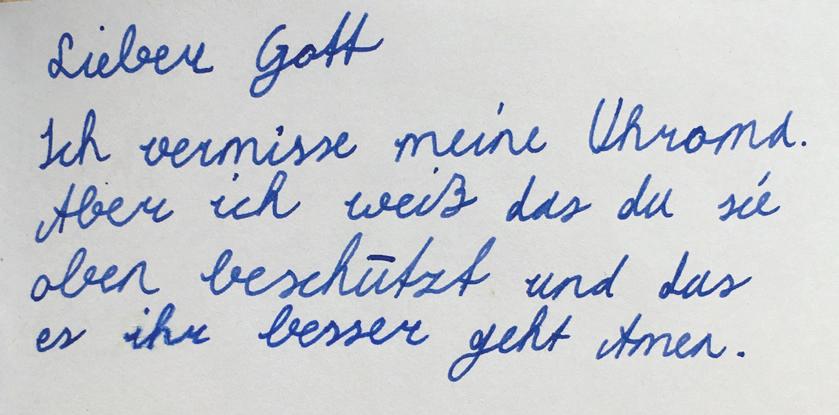 Lieber Gott
Ich vermisse meine Uhroma.
Aber ich weiß das du sie
oben beschützt und das
es ihr besser geht Amen.